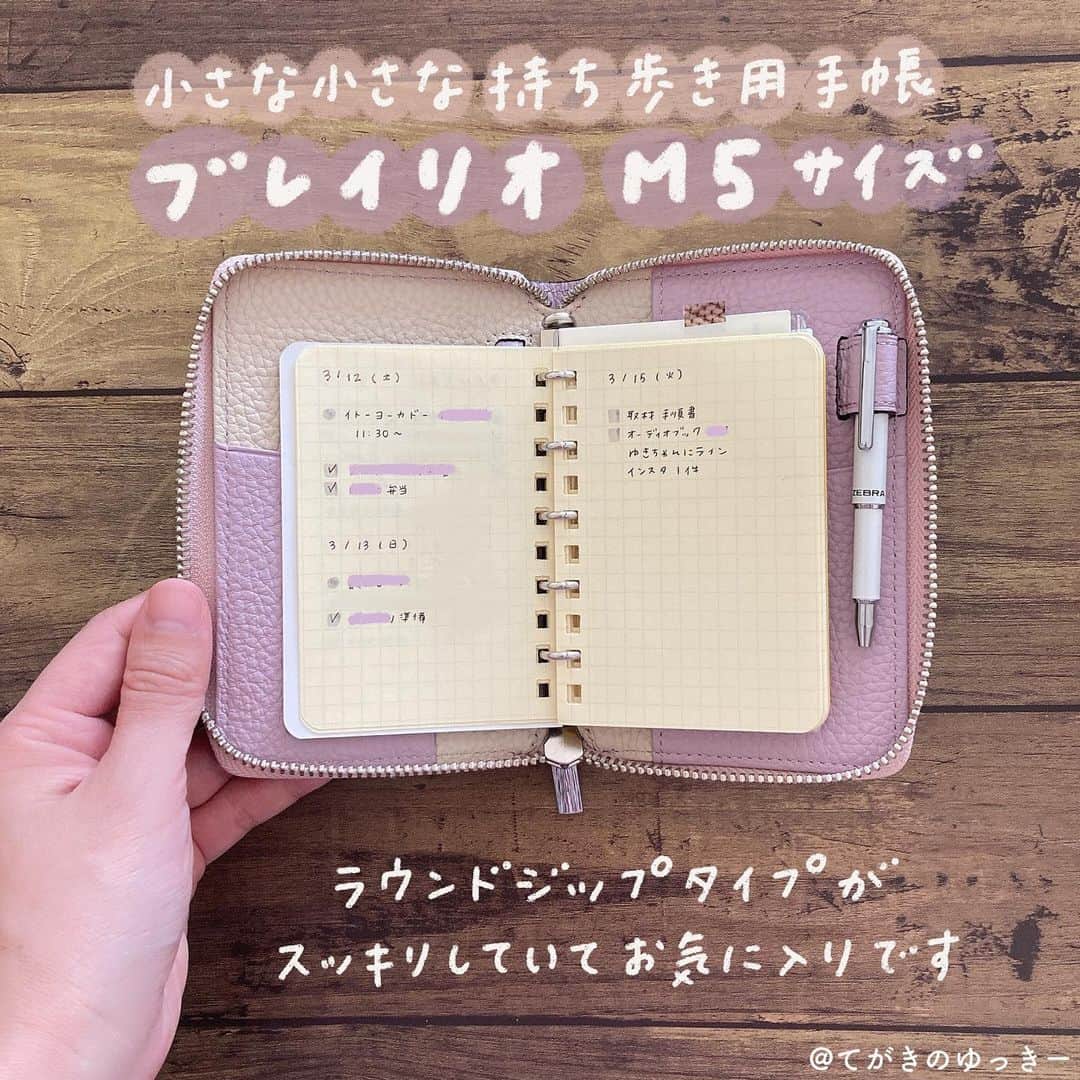 小さな小さな持ち歩き用手帳
ブレイリオ M5サイズ
3/12(土)
イトーヨーカドー
11:30〜
弁当
3/13(日)
準備
3/15(火)
取材 手順書
オーディオブック
ゆきちゃんにライン
インスタ1件
ZEBRA
ラウンドジップタイプが
スッキリしていてお気に入りです
@てがきのゆっきー